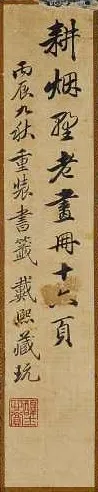 耕烟野老畫冊十六頁
丙辰九秋重裝書籤戴熙藏玩